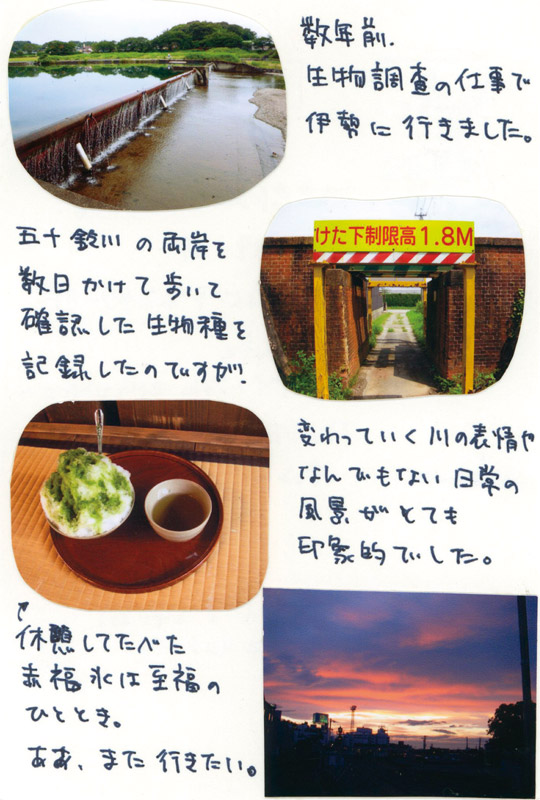 数年前、
生物調査の仕事で
伊勢に行きました。
けた下制限高1.8M
五十鈴川の両岸を
数日かけて歩いて
確認した生物種を
記録したのですが、
変わっていく川の表情や
なんでもない日常の
風景がとても
印象的でした。
休憩してたべた
赤福氷は至福の
ひととき。
ああ、また行きたい。